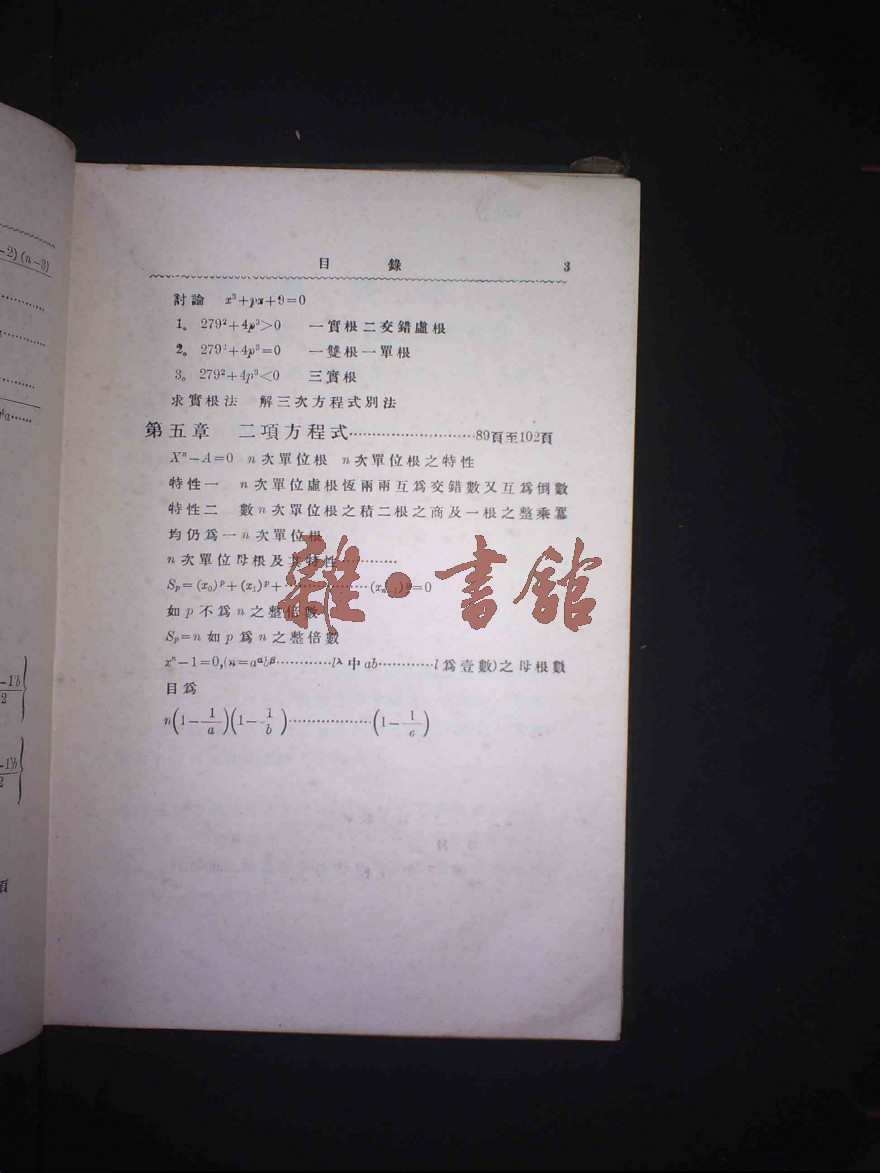 目 錄 3
討論 x³+px+9=0
1。 279²+4p³>0 一實根二交錯虛根
2。 279²+4p³=0 一雙根一單根
3。 279²+4p³<0 三實根
求實根法 解三次方程式別法
第五章 二項方程式………………………89頁至102頁
Xⁿ−A=0 n次單位根 n次單位根之特性
特性一 n次單位虛根恆兩兩互爲交錯數又互爲倒數
特性二 數n次單位根之積二根之商及一根之整乘冪
均仍爲一n次單位根
n次單位母根及其特性…………
Sₚ=(x₀)ᵖ+(x₁)ᵖ+………………(xₙ₋₁)ᵖ=0
如p不爲n之整倍數
Sₚ=n如p爲n之整倍數
xⁿ−1=0,(n=aᵅbᵝ…………lλ中ab…………l爲壹數)之母根數
目爲
n(1−1/a)(1−1/b)………………(1−1/c)
−2)(n−3)
−1)b
2
−1)b
2
項
雜·書館